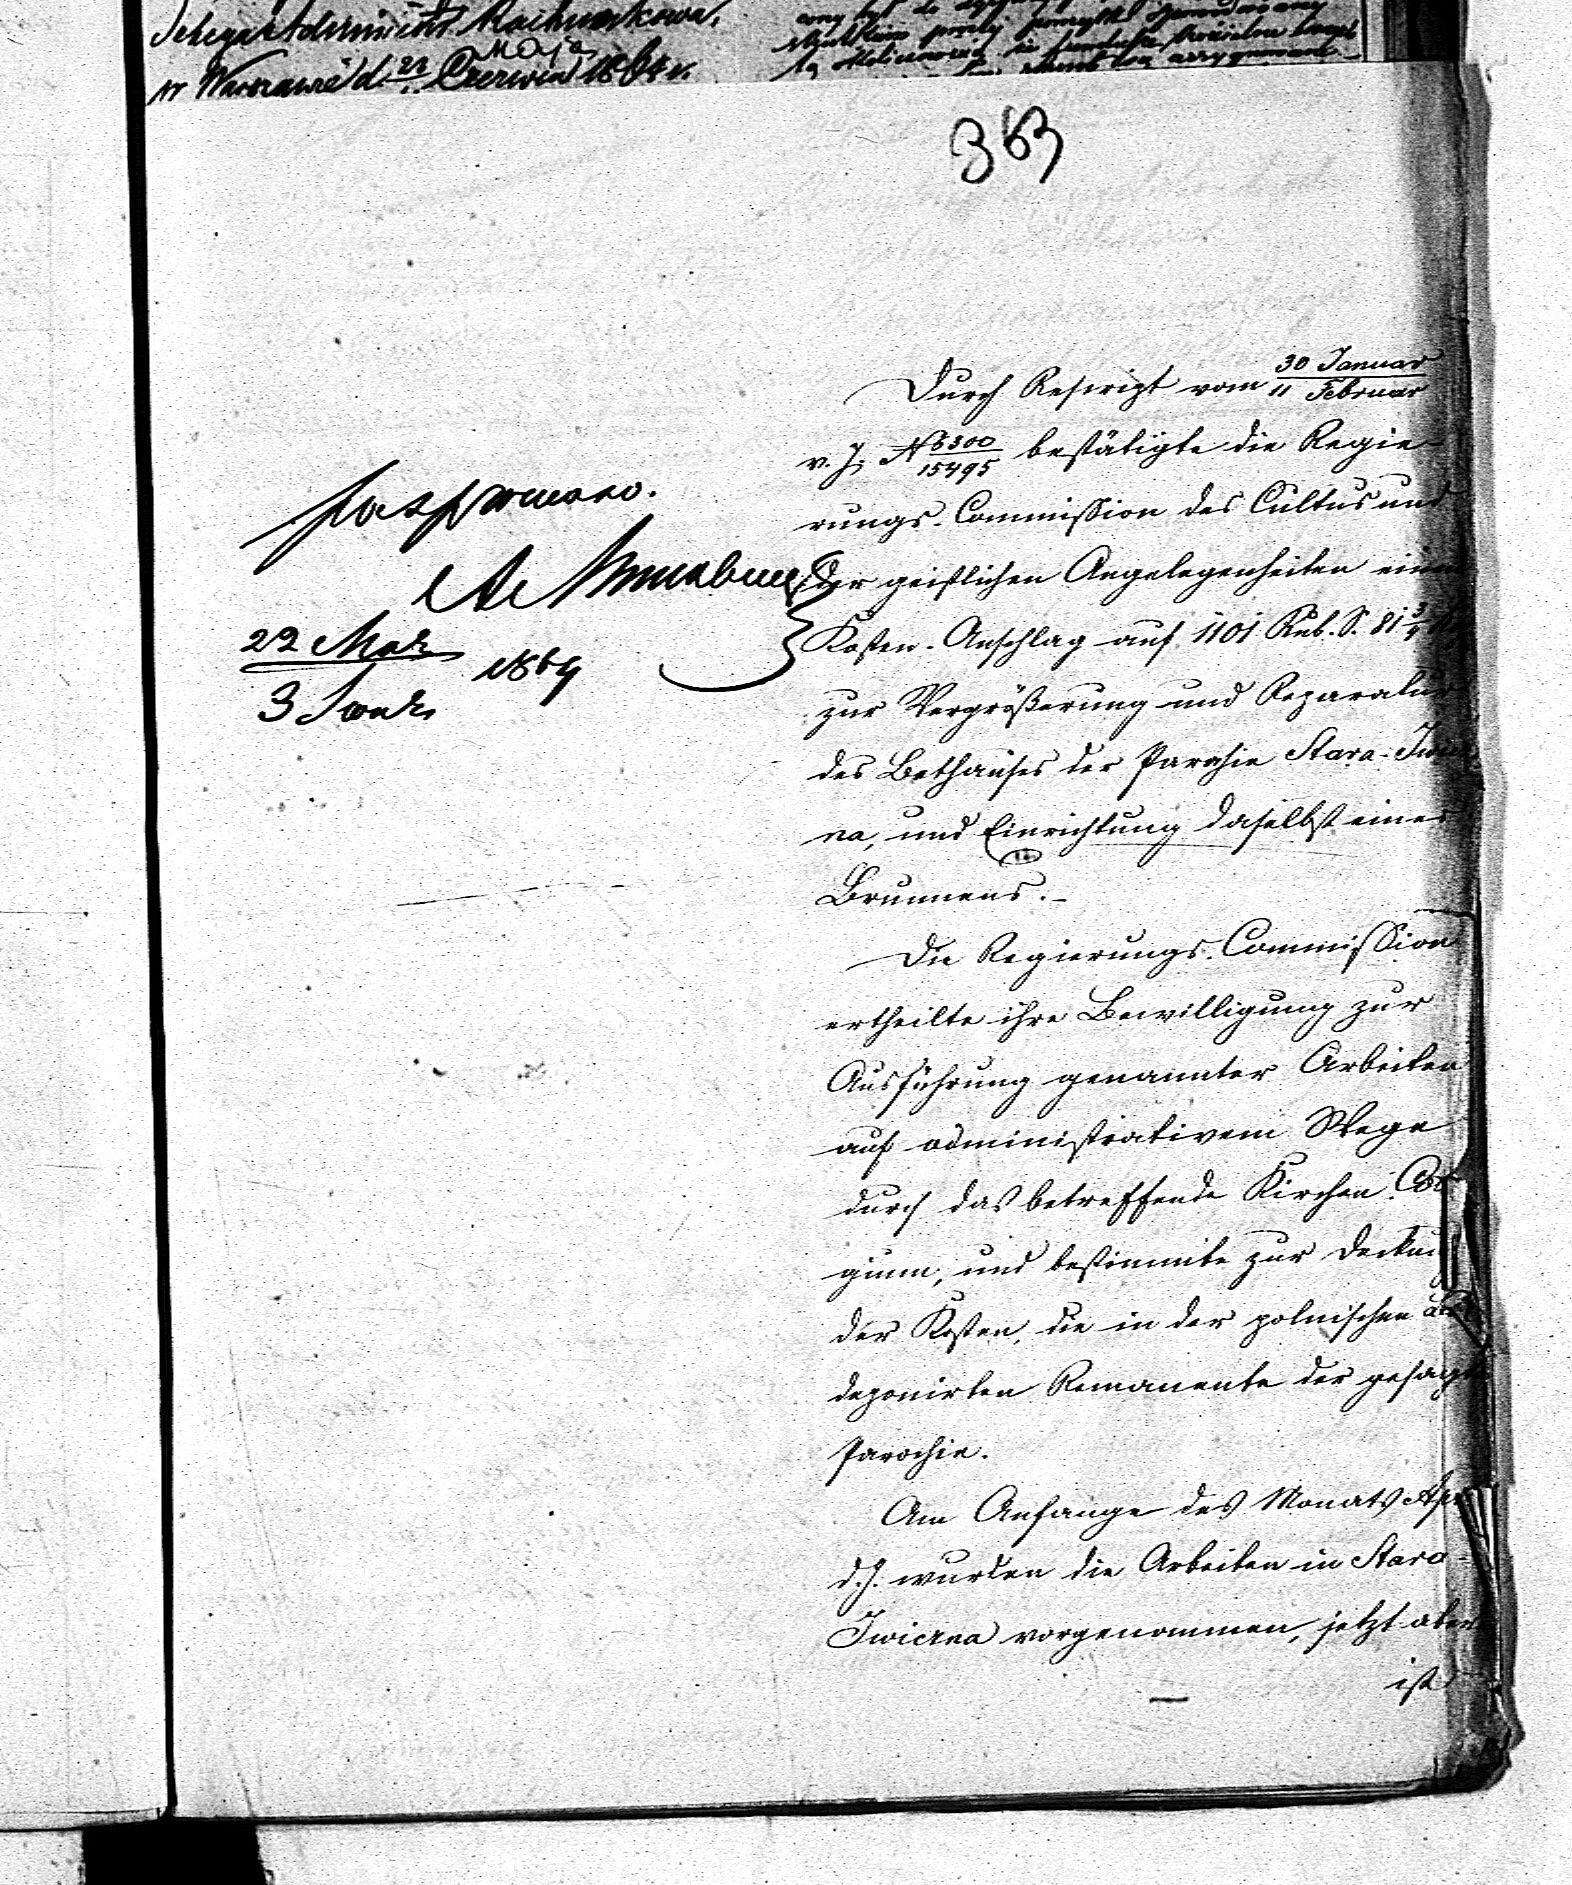 w Warszawie d. Czerwca
Maja
363
Durch Rescript vom 30 Januar / 11 Februar
v. J. N 6300/15495 bestätigte die Regie-
rungs-Commission des Cultus und
der geistlichen Angelegenheiten einen
Kosten-Anschlag auf 1101 Rub. S. 81 3/4
zur Vergrößerung und Reparatur
des Bethauses der Parochie Stara-Iwicz
na, und Einrichtung daselbst eines
Brunnens.-
Die Regierungs-Commission
ertheilte ihre Bewilligung zur
Ausführung genannter Arbeiten
auf administrativem Wege
durch das betreffende Kirchen-Col
gium, und bestimmte zur Deckung
der Kosten, die in der polnischen
deponirten Remanente der gesagten
Parochie.
Am Anfange des Monats Apr
d. J. wurden die Arbeiten in Stara-
Iwiczna vorgenommen, jetzt aber
ist
22 Mai
3 1864